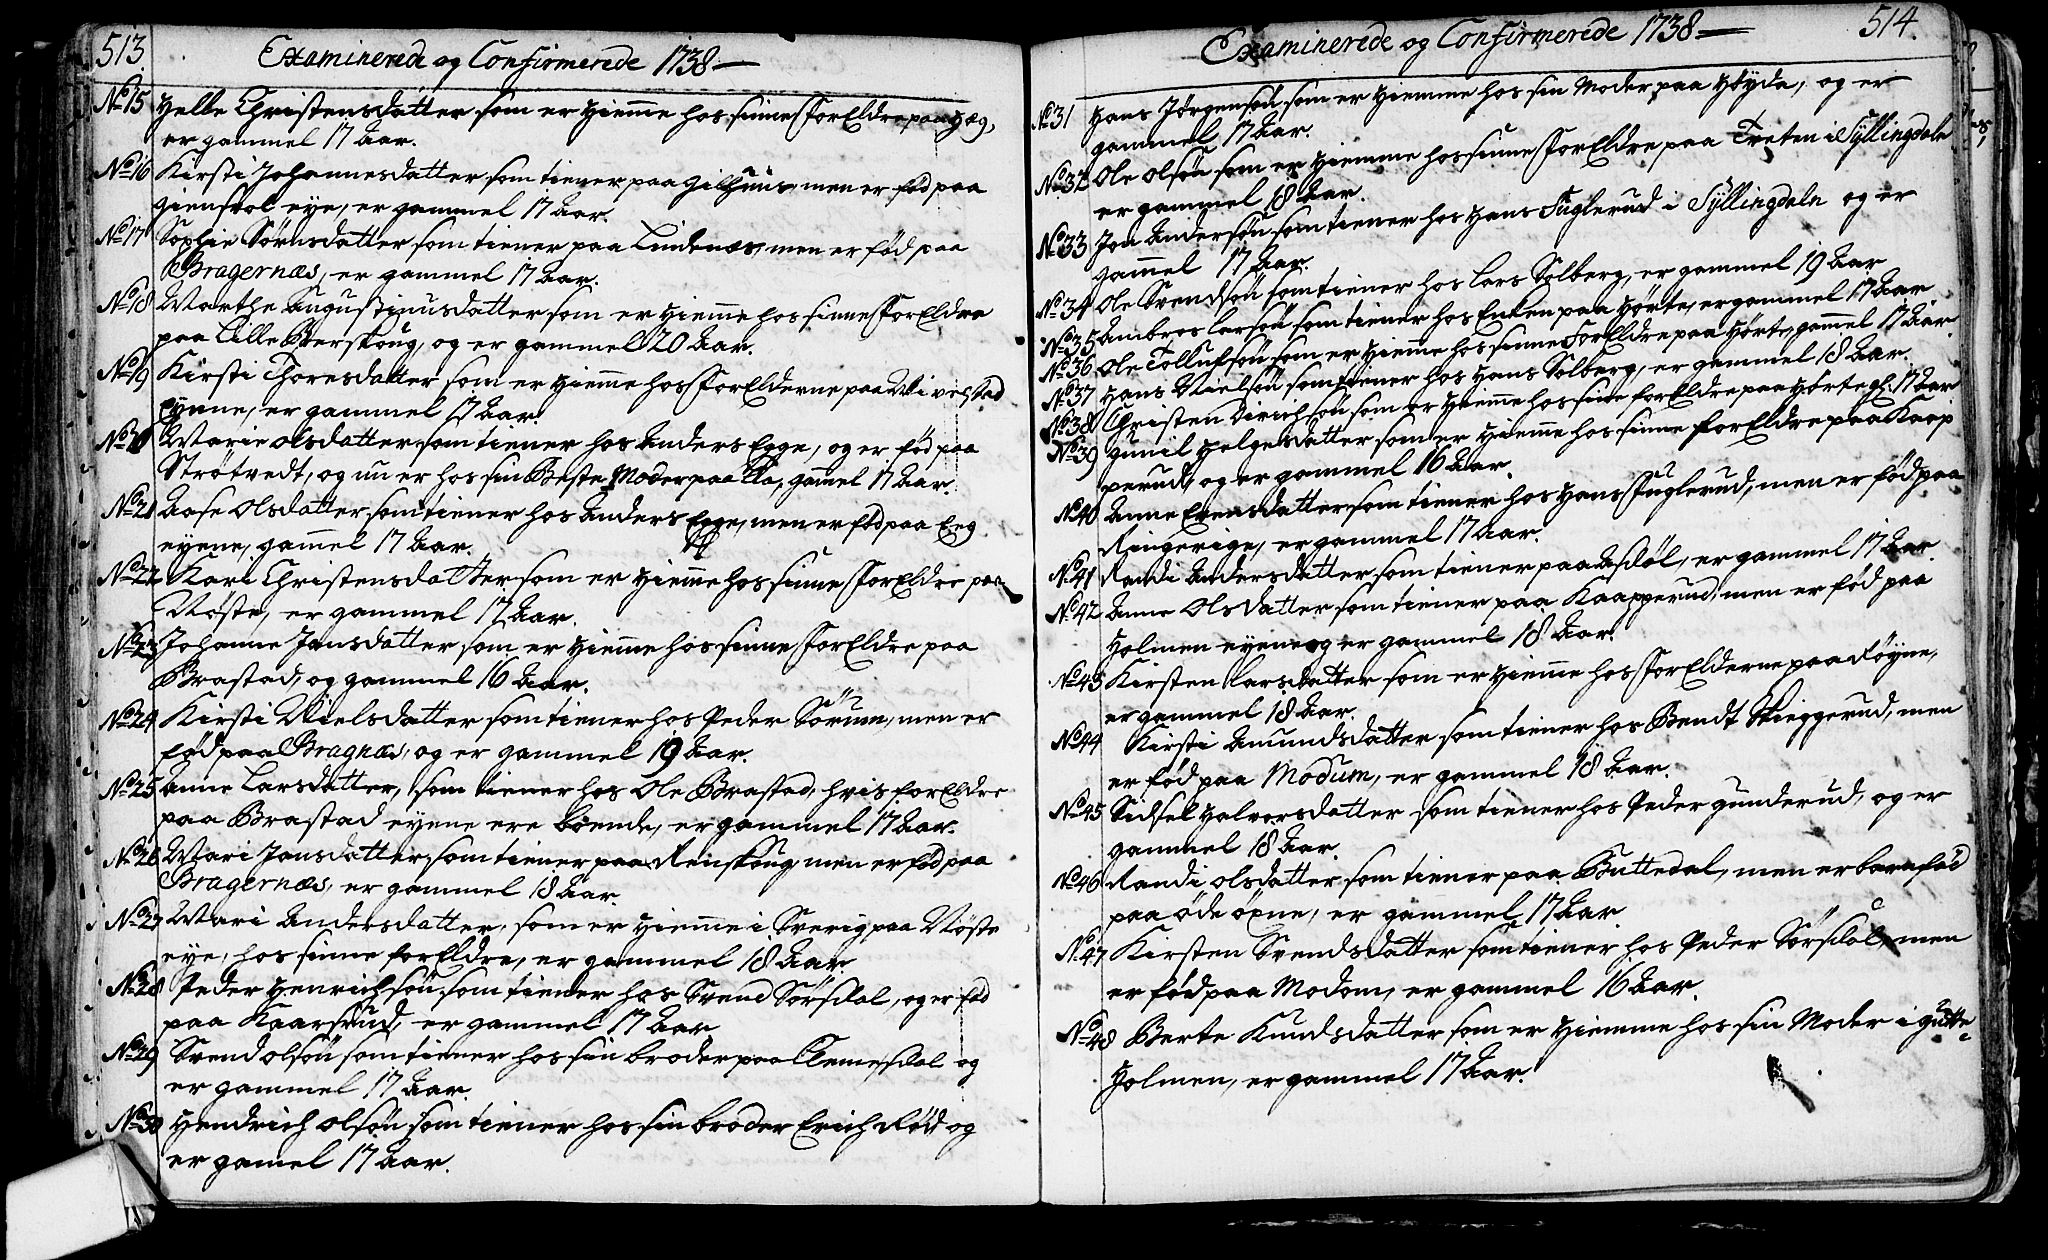 513.
Examinerede og Confirmerede 1738
No 15 Helle Christensdatter som er Hiemme hos sinne ForEldre paa Hæg,
er gammel 17 Aar.
No 16 Kirsti Johannesdatter som tiener paa Gilhuus men er fød paa
eye, er gammel 17 Aar.
No 17 Sophie Sørnsdatter som tiener paa Lindnæs, men er fød paa
Bragernæs, er gammel 17 Aar.
No 18 Marthe Augustinusdatter som er Hiemme hos sinne ForEldre
paa Lille Berskoug, og er gammel 20 Aar.
No 19 Kirsti Thoresdatter som er Hiemme hos ForElderne paa Mivelstad
Eyene, er gammel 17 Aar.
No 20 Marie Olsdatter som tiener hos Anders Egge, og er fød paa
Strøtvedt, og nu er hos sin Beste Moder paa Lia, gamel 17 Aar.
No 21 Aase Olsdatter som tiener hos Anders Egge, men er fød paa Eeg
eyene, gamel 17 Aar.
No 22 Kari Christensdatter som er Hiemme hos sinne ForEldre paa
Nøste, er gammel 17 Aar.
No 23 Johanne Jansdatter som er Hiemme hos sinne ForEldre paa
Brastad, og gammel 16 Aar.
No 24 Kirsti Nielsdatter som tiener hos Peder Sørum, men er
fød paa Bragnæs, og er gammel 19 Aar.
No 25 Anne Larsdatter, som tiener hos Ole Brastad, hvis forEldre
paa Brastad eyene ere boende, er gammel 17 Aar.
No 26 Mari Jansdatter som tiener paa Reinskoug men er fød paa
Bragernæs, er gammel 18 Aar
No 27 Mari Andersdatter, som er Hieme i Sverig paa Nøste
eye, hos sinne forEldre, er gammel 18 Aar.
No 28 Peder Henrichsøn som tiener hos Svend Sørsdal, og er fød
paa Kaarsrud, er gammel 17 Aar
No 29 Svend Olsøn som tiener hos sin broder paa Tlemesdal og
er gammel 17 Aar.
No 30 Hendrich Olsøn som tiener hos sin broder Erich Rød og
er gamel 17 Aar.
514.
Examinerede og Confirmerede 1738
No 31 Hans Jørgensøn som er Hiemme hos sin Moder paa Høyda, og er
gammel 17 Aar.
No 32 Ole Olsøn som er Hiemme hos sinne ForEldre paa Treten i Syllingdaln
er gammel 18 Aar.
No 33 Jon Andersøn som tiener hos Hans Fuglerud i Syllingdaln og er
gamel 17 Aar.
No 34 Ole Svendsøn som tiener hos Lars Solberg, er gammel 19 Aar
No 35 Ambros Larsøn som tiener hos Enken paa Hørte, er gammel 17 Aar.
No 36 Ole Tollufsøn som er Hieme hos sinne ForElldre paa Hørte, gamel 17 Aar
No 37 Hans Nielsøn som tiener hos Hans Solberg, er gammel 18 Aar.
No 38 Christen Dirichsøn som er Hieme hos sine forEldre paa Hørte gl. 17 Aar
No 39 Gunil Helgesdatter som er Hieme hos sinne forEldre paa Kaap
perud, og er gammel 16 Aar.
No 40 Anne Evensdatter som tiener hos Hans Fuglerud, men er fød paa
Ringerige, er gammel 17 Aar.
No 41 Randi Andersdatter som tiener paa Asdøl, er gammel 17 Aar
No 42 Anne Olsdatter som tiener paa Kaapperud, men er fød paa
Holmen eyene og er gammel 18 Aar.
No 43 Kirsten Larsdatter som er Hieme hos ForElderne paa Røyne,
er gammel 18 Aar.
No 44 Kirsti Amundsdatter som tiener hos Bendt Skieggerud, men
er fød paa Modum, er gammel 18 Aar.
No 45 Sidsel Halvorsdatter som tiener hos Peder Gunderud, og er
gammel 18 Aar.
No 46 Randi Olsdatter som tiener paa Buttedal, men er barnfød
paa øde øxne, er gammel 17 Aar
No 47 Kirsten Svendsdatter som tiener hos Peder Sørsdal, men
er fød paa Modom, er gammel 16 Aar.
No 48 Berte Knudsdatter som er Hiemme hos sin Moder i Gutte
Holmen, er gammel 17 Aar.